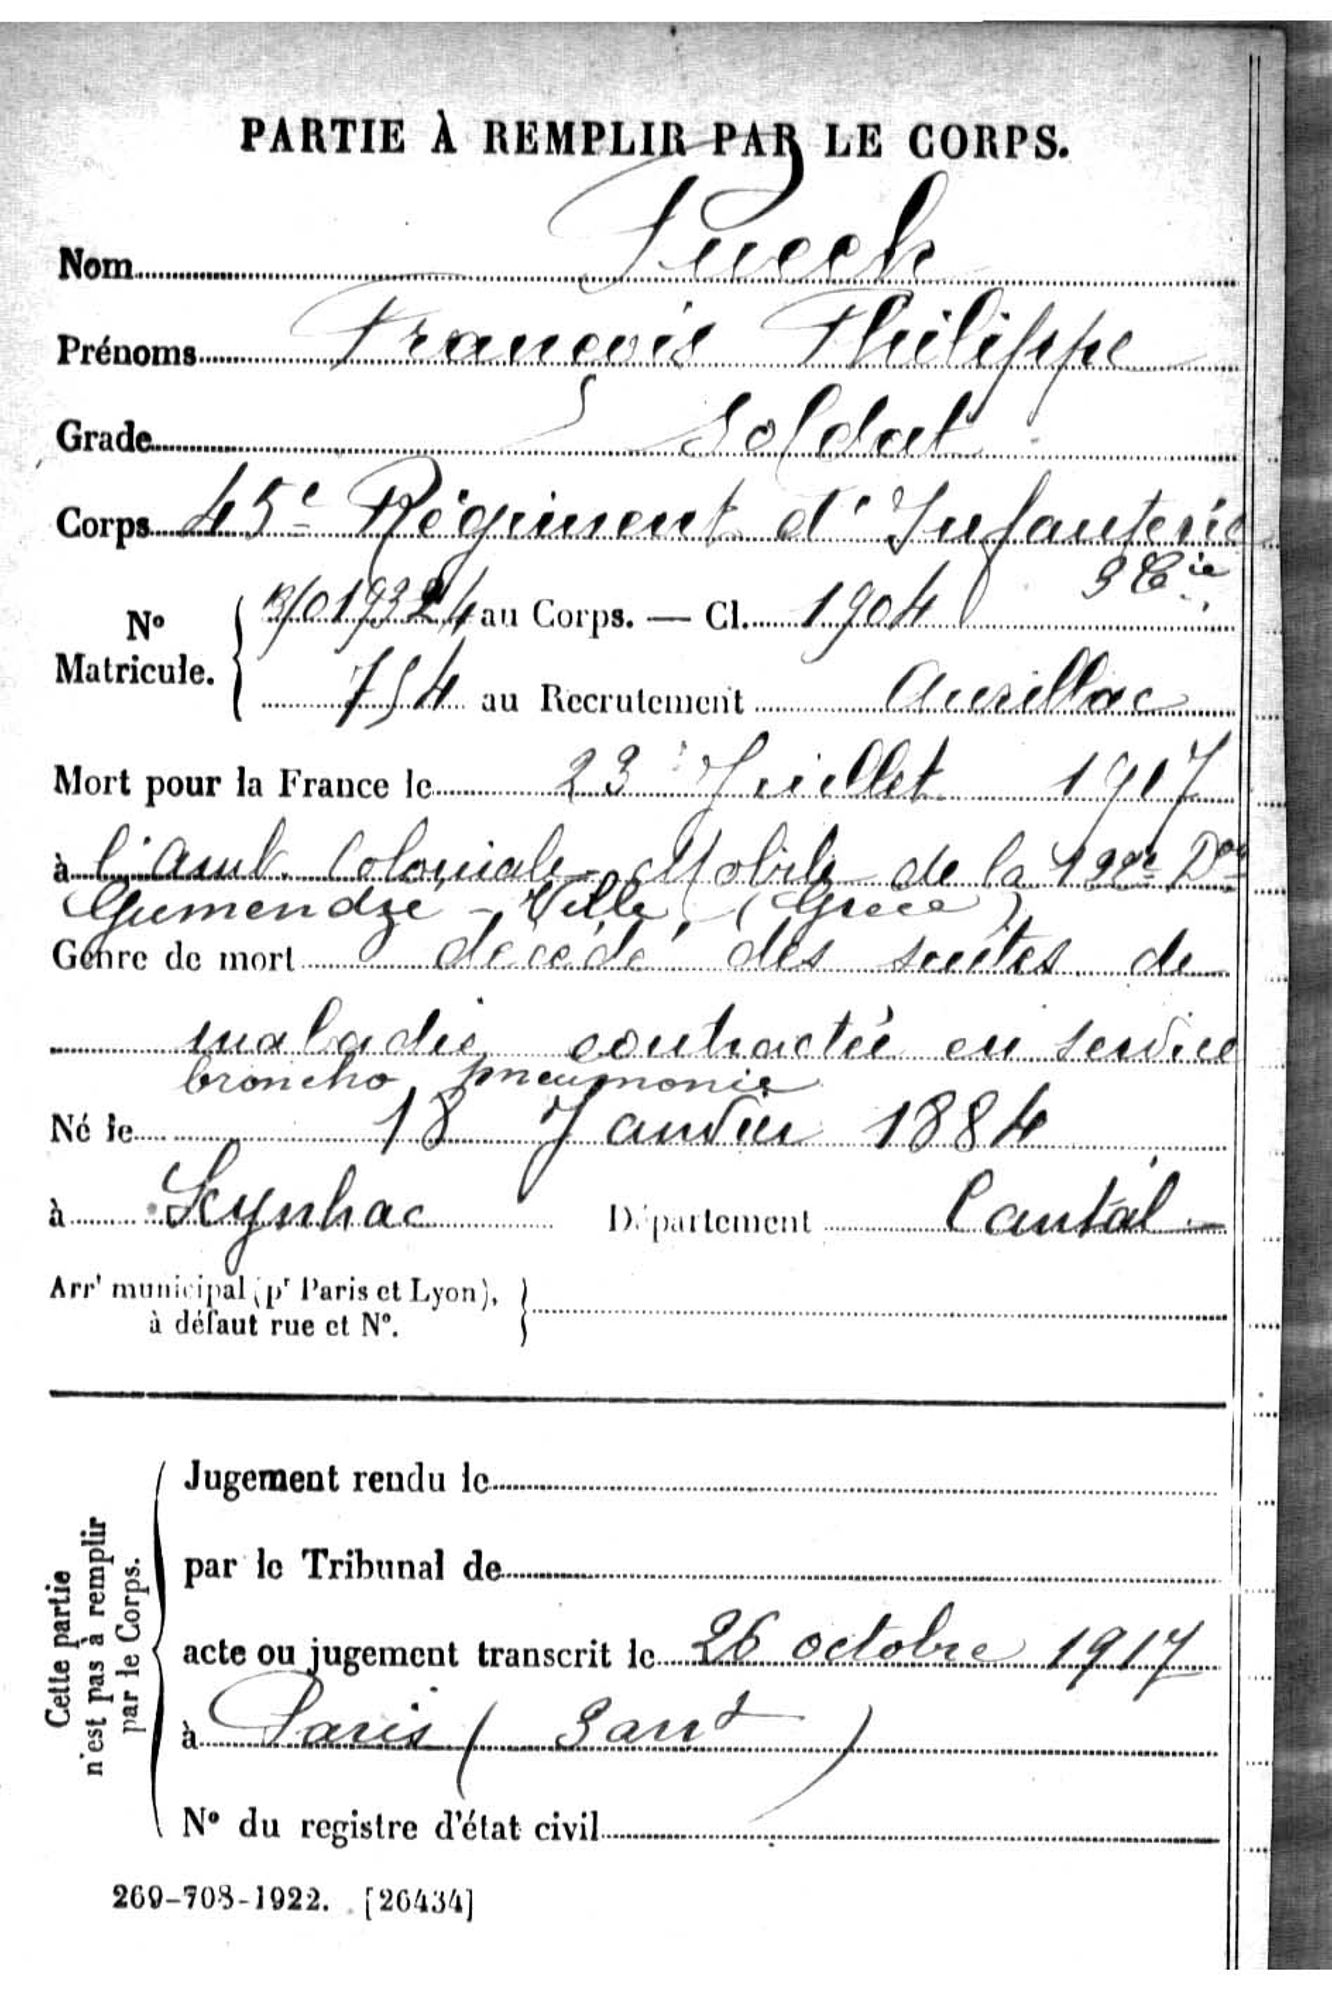 PARTIE À REMPLIR PAR LE CORPS.
Nom Puech
Prénoms François Philippe
Grade Soldat
Corps 45e Régiment d'Infanterie
9 Cie
No Matricule. 19324 au Corps. — Cl. 1904
754 au Recrutement Aurillac
Mort pour la France le 23 Juillet 1917
à l'Amb. Coloniale Mobile de la 122e Don
Gumendze - Ville (Grèce)
Genre de mort décédé des suites de
maladie contractée en service
broncho pneumonie
Né le 18 Janvier 1884
à Leynhac Département Cantal
Arrt municipal (pr Paris et Lyon),
à défaut rue et No.
Cette partie
n'est pas à remplir
par le Corps.
Jugement rendu le
par le Tribunal de
acte ou jugement transcrit le 26 octobre 1917
à Paris (
No du registre d'état civil
269-708-1922. [26434]